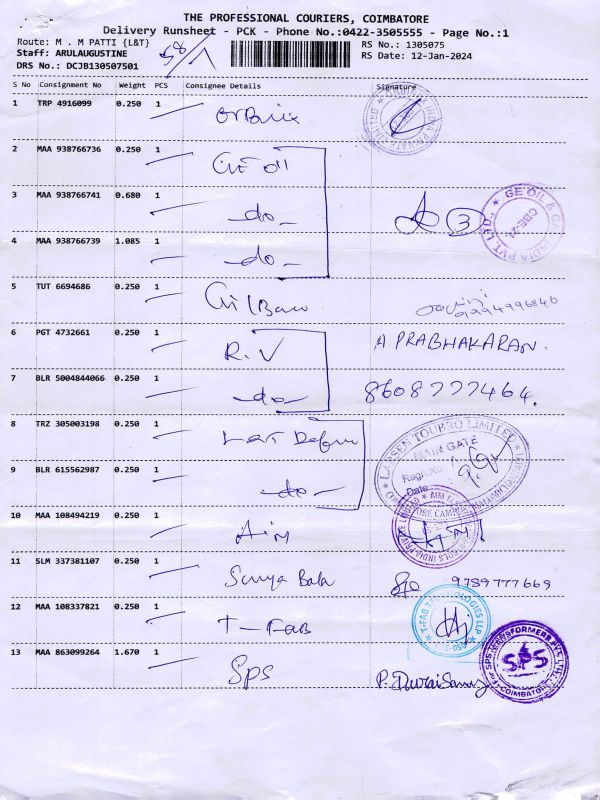 THE PROFESSIONAL COURIERS, COIMBATORE
Delivery Runsheet - PCK - Phone No.:0422-3505555 - Page No.:1
Route: M . M PATTI {L&T}
Staff: ARULAUGUSTINE
DRS No.: DCJB130507501
58/1
RS No.: 1305075
RS Date: 12-Jan-2024
S No Consignment No Weight PCS Consignee Details Signature
1 TRP 4916099 0.250 1
2 MAA 938766736 0.250 1 GE oil
3 MAA 938766741 0.680 1 -do- 3
GE OIL & GAS INDIA PVT. LTD., CBE-21
4 MAA 938766739 1.085 1 -do-
5 TUT 6694686 0.250 1 9994996846
6 PGT 4732661 0.250 1 R.V A.PRABHAKARAN.
7 BLR 5004844066 0.250 1 -do- 8608777464.
8 TRZ 305003198 0.250 1
LARSEN TOUBRO LIMITED
MAIN GATE
Regn.No
Date
9 BLR 615562987 0.250 1 -do-
10 MAA 108494219 0.250 1 AIM
11 SLM 337381107 0.250 1 Surya Bala 9789777669
12 MAA 108337821 0.250 1 T-Fab
T-FAB TECHNOLOGIES LLP
13 MAA 863099264 1.670 1 SPS P. Duraisamy
For SPS TRANSFORMERS PVT LTD., COIMBATORE
SPS